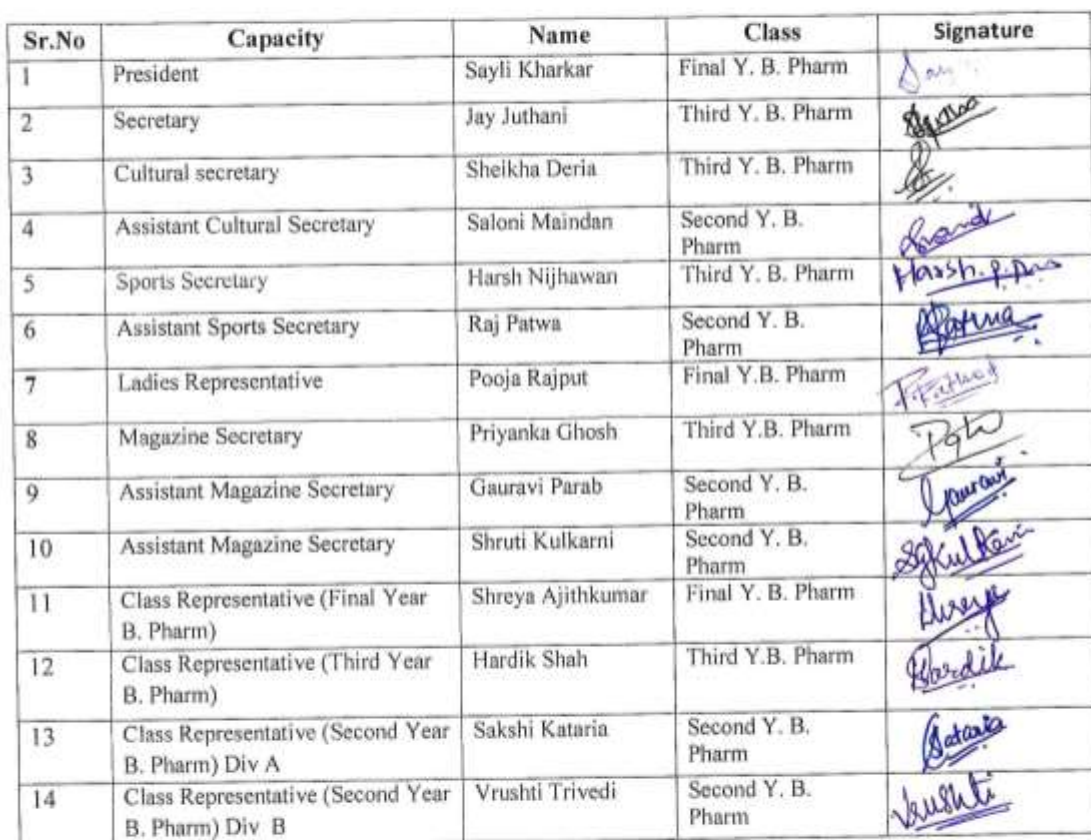 Sr.No Capacity Name Class Signature
1 President Sayli Kharkar Final Y. B. Pharm
2 Secretary Jay Juthani Third Y. B. Pharm
3 Cultural secretary Sheikha Deria Third Y. B. Pharm
4 Assistant Cultural Secretary Saloni Maindan Second Y. B.
Pharm
5 Sports Secretary Harsh Nijhawan Third Y. B. Pharm Harsh.
6 Assistant Sports Secretary Raj Patwa Second Y. B.
Pharm
7 Ladies Representative Pooja Rajput Final Y.B. Pharm
8 Magazine Secretary Priyanka Ghosh Third Y.B. Pharm
9 Assistant Magazine Secretary Gauravi Parab Second Y. B. Gauravi
Pharm
10 Assistant Magazine Secretary Shruti Kulkarni Second Y. B. SGKulkarni
Pharm
11 Class Representative (Final Year Shreya Ajithkumar Final Y. B. Pharm Shreya
B. Pharm)
12 Class Representative (Third Year Hardik Shah Third Y.B. Pharm Hardik
B. Pharm)
13 Class Representative (Second Year Sakshi Kataria Second Y. B.
B. Pharm) Div A Pharm
14 Class Representative (Second Year Vrushti Trivedi Second Y. B. Vrushti
B. Pharm) Div B Pharm